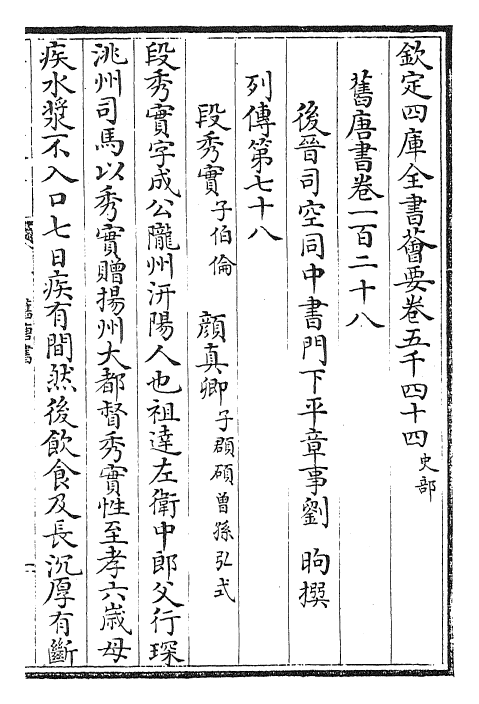 欽定四庫全書薈要卷五千四十四 史部
舊唐書卷一百二十八
後晉司空同中書門下平章事劉 昫撰
列傳第七十八
段秀實 子伯倫 顔真卿 子頵碩 曾孫弘式
段秀實字成公隴州汧陽人也祖達左衛中郎父行琛
洮州司馬以秀實贈揚州大都督秀實性至孝六歲母
疾水漿不入口七日疾有間然後飲食及長沉厚有斷
舊唐書